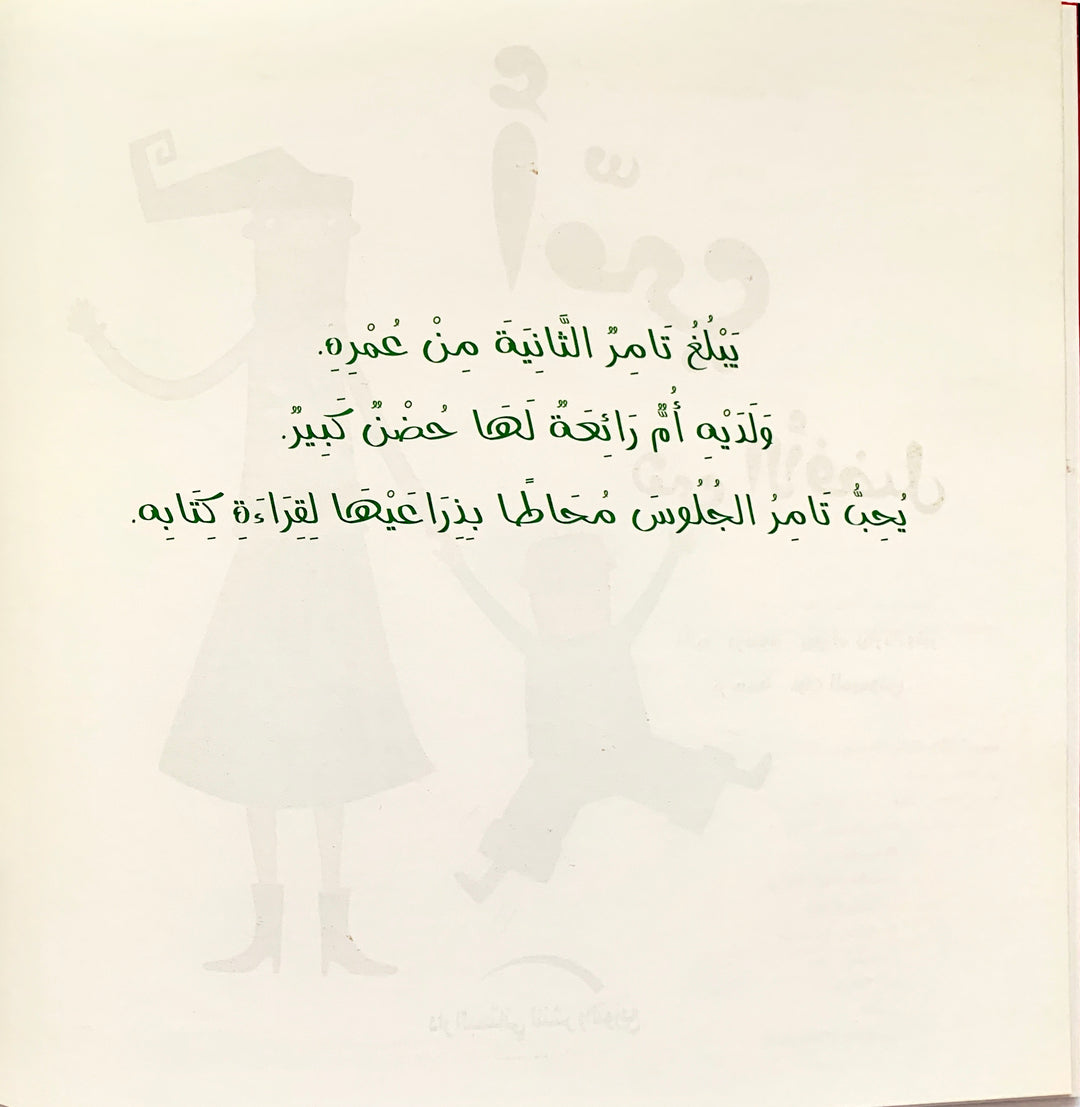 يَبْلُغُ تَامِرٌ الثَّانِيَةَ مِنْ عُمْرِهِ.
وَلَدَيْهِ أُمٌّ رَائِعَةٌ لَهَا حُضْنٌ كَبِيرٌ.
يُحِبُّ تَامِرُ الجُلُوسَ مُحَاطًا بِذِرَاعَيْهَا لِقِرَاءَةِ كِتَابِه.